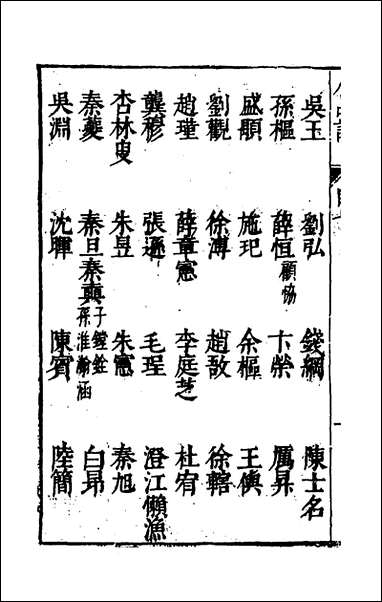 吳玉　劉弘　錢綱　陳士名
孫樞　薛恒顧協　卞榮　厲昇
盛顒　施玘　余樞　王僎
劉觀　徐溥　趙敔　徐轄
趙瑾　薛章憲　李庭芝　杜宥
龔穆　張遜　毛珵　澄江懶漁
杏林叟　朱昱　朱憲　秦旭
秦夔　秦旦秦真子鏜銓孫淮瀚涵　白昂
吳淵　沈暉　陳賓　陸簡